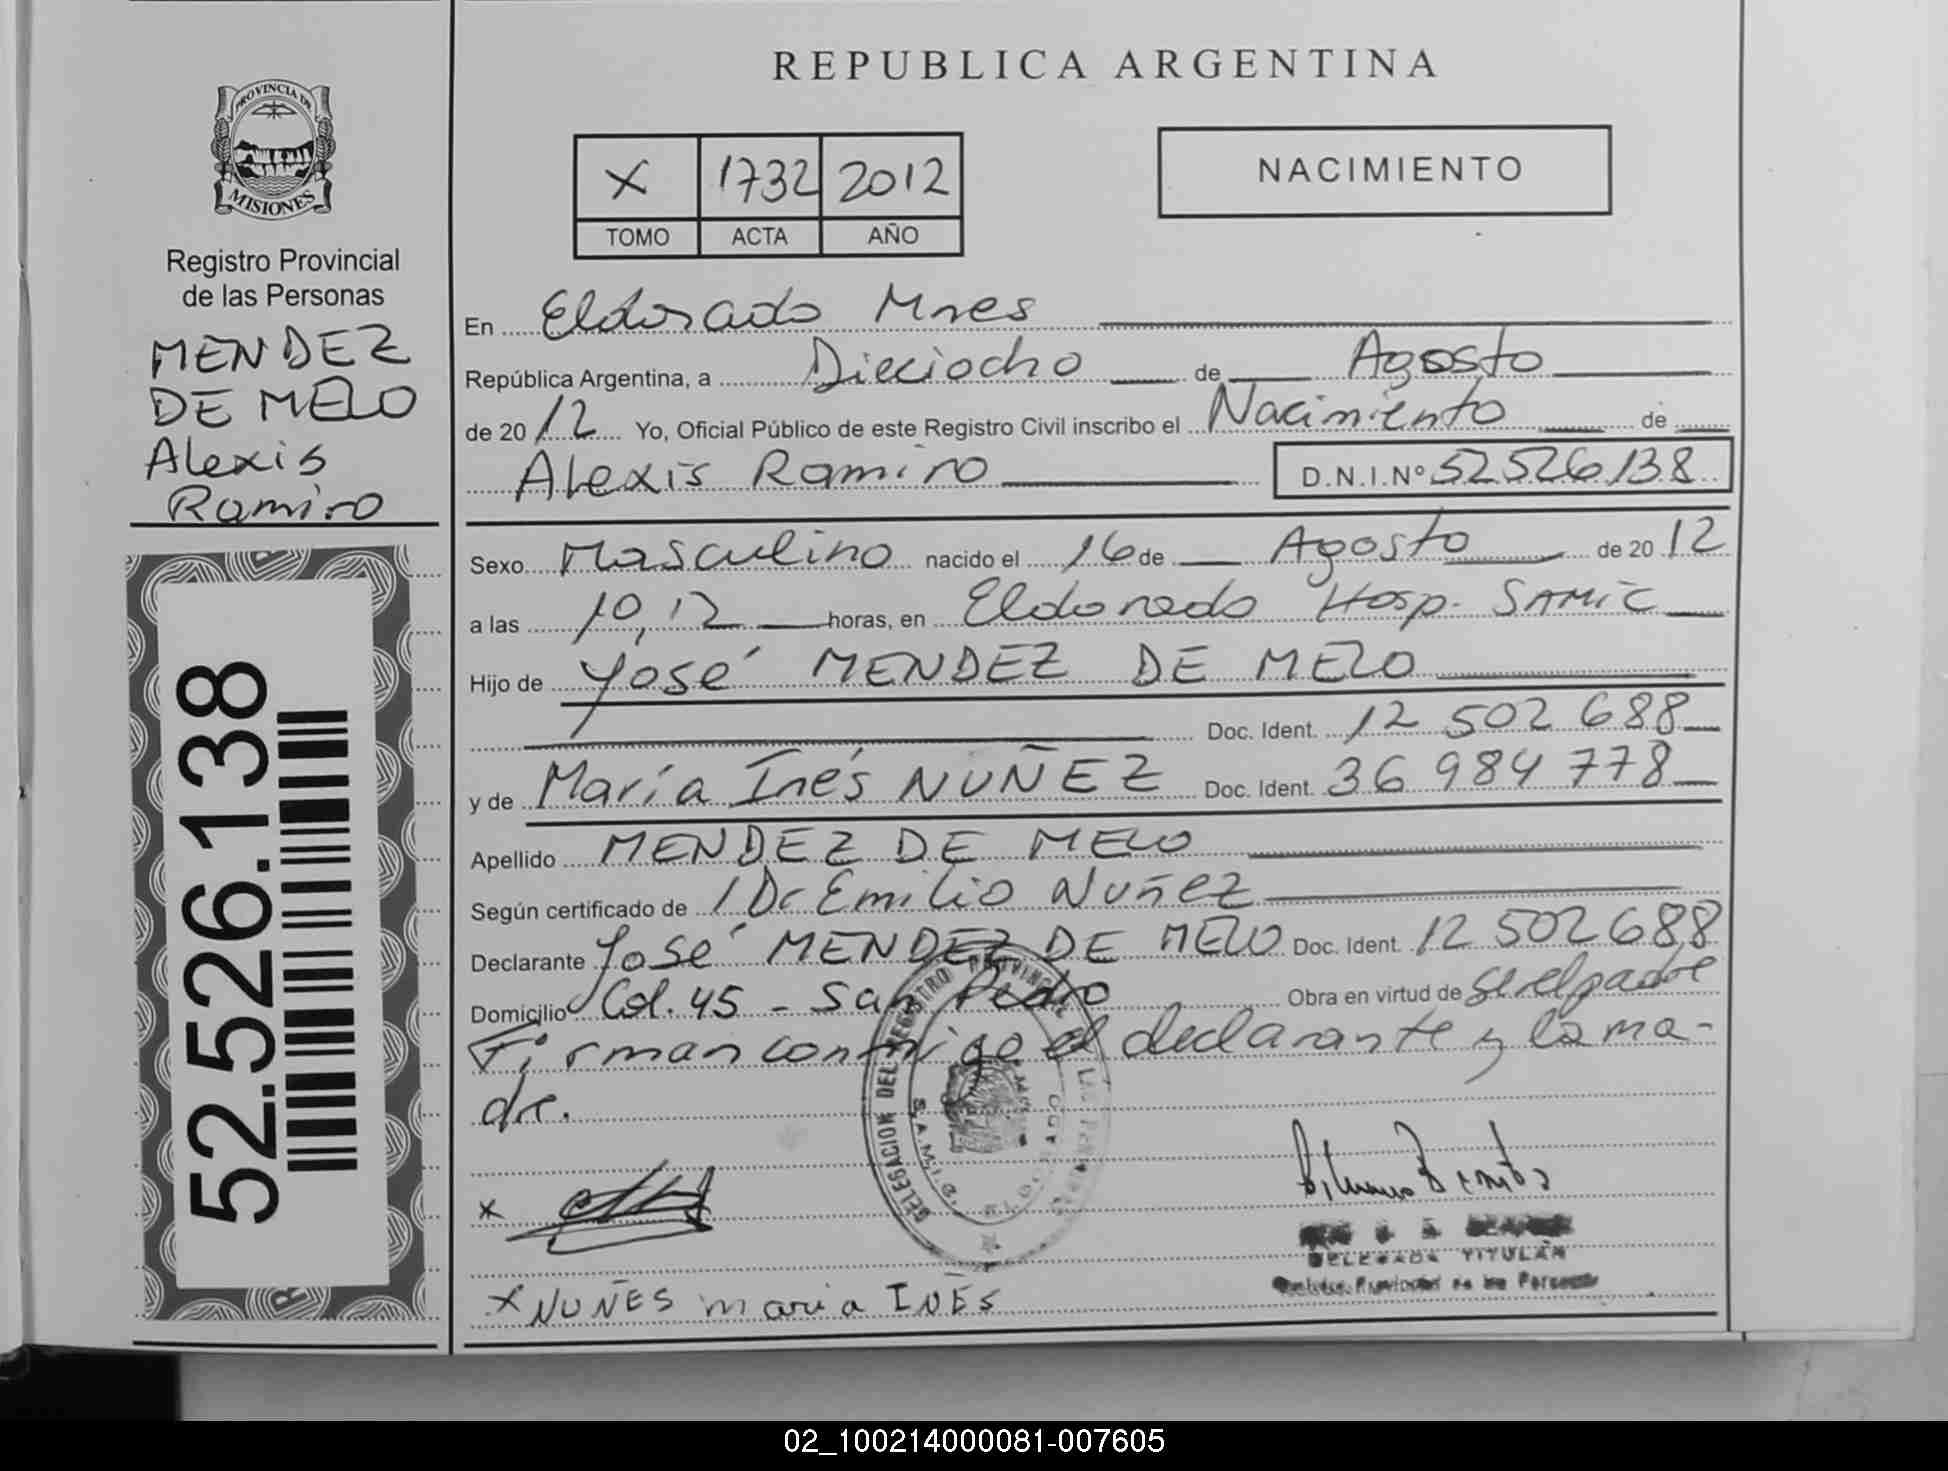 REPUBLICA ARGENTINA
PROVINCIA DE
MISIONES
Registro Provincial
de las Personas
MENDEZ
DE MELO
Alexis
Ramiro
52.526.138
X 1732 2012
TOMO ACTA AÑO
NACIMIENTO
En Eldorado Mnes
República Argentina, a Dieciocho de Agosto
de 2012 Yo, Oficial Público de este Registro Civil inscribo el Nacimiento de
Alexis Ramiro D.N.I.Nº 52526138
Sexo Masculino nacido el 16 de Agosto de 2012
a las 10,12 horas, en Eldorado Hosp. SAMIC
Hijo de José MENDEZ DE MELO
Doc. Ident. 12 502 688
y de María Inés NUÑEZ Doc. Ident. 36 984 778
Apellido MENDEZ DE MELO
Según certificado de / Dr Emilio Nuñez
Declarante José MENDEZ DE MELO Doc. Ident. 12 502 688
Domicilio Col. 45 - San Pedro Obra en virtud de ser el padre
Firman conmigo el declarante y la ma-
dre.
DELEGACION DEL REGISTRO PROVINCIAL DE LAS PERSONAS
S.A.M.I.C.
ELDORADO
DELEGADA TITULAR
Registro Provincial de las Personas
x
x NUÑES maria INÉS
02_100214000081-007605